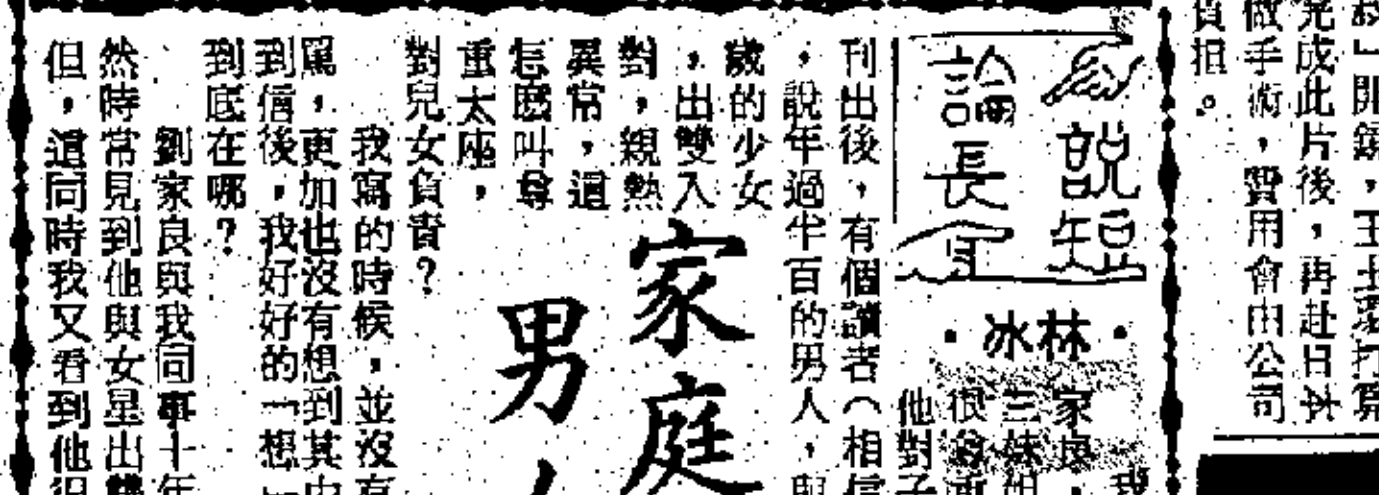 完成此片後，再赴日
做手術，費用會由公司
負担。
說短
論長
・林冰・
家
三妹
他對子
刊出後，有個讀者（相信
，說年過半百的男人，與
歲的少女
，出雙入
對，親熱
異常，這
怎麽叫尊
重太座，
對兒女負責？
家庭
男
我寫的時候，並沒有
罵，更加也沒有想到其中
到信後，我好好的「想一
到底在哪？
劉家良與我同事十年
然時常見到他與女星出雙
但，這同時我又看到他很